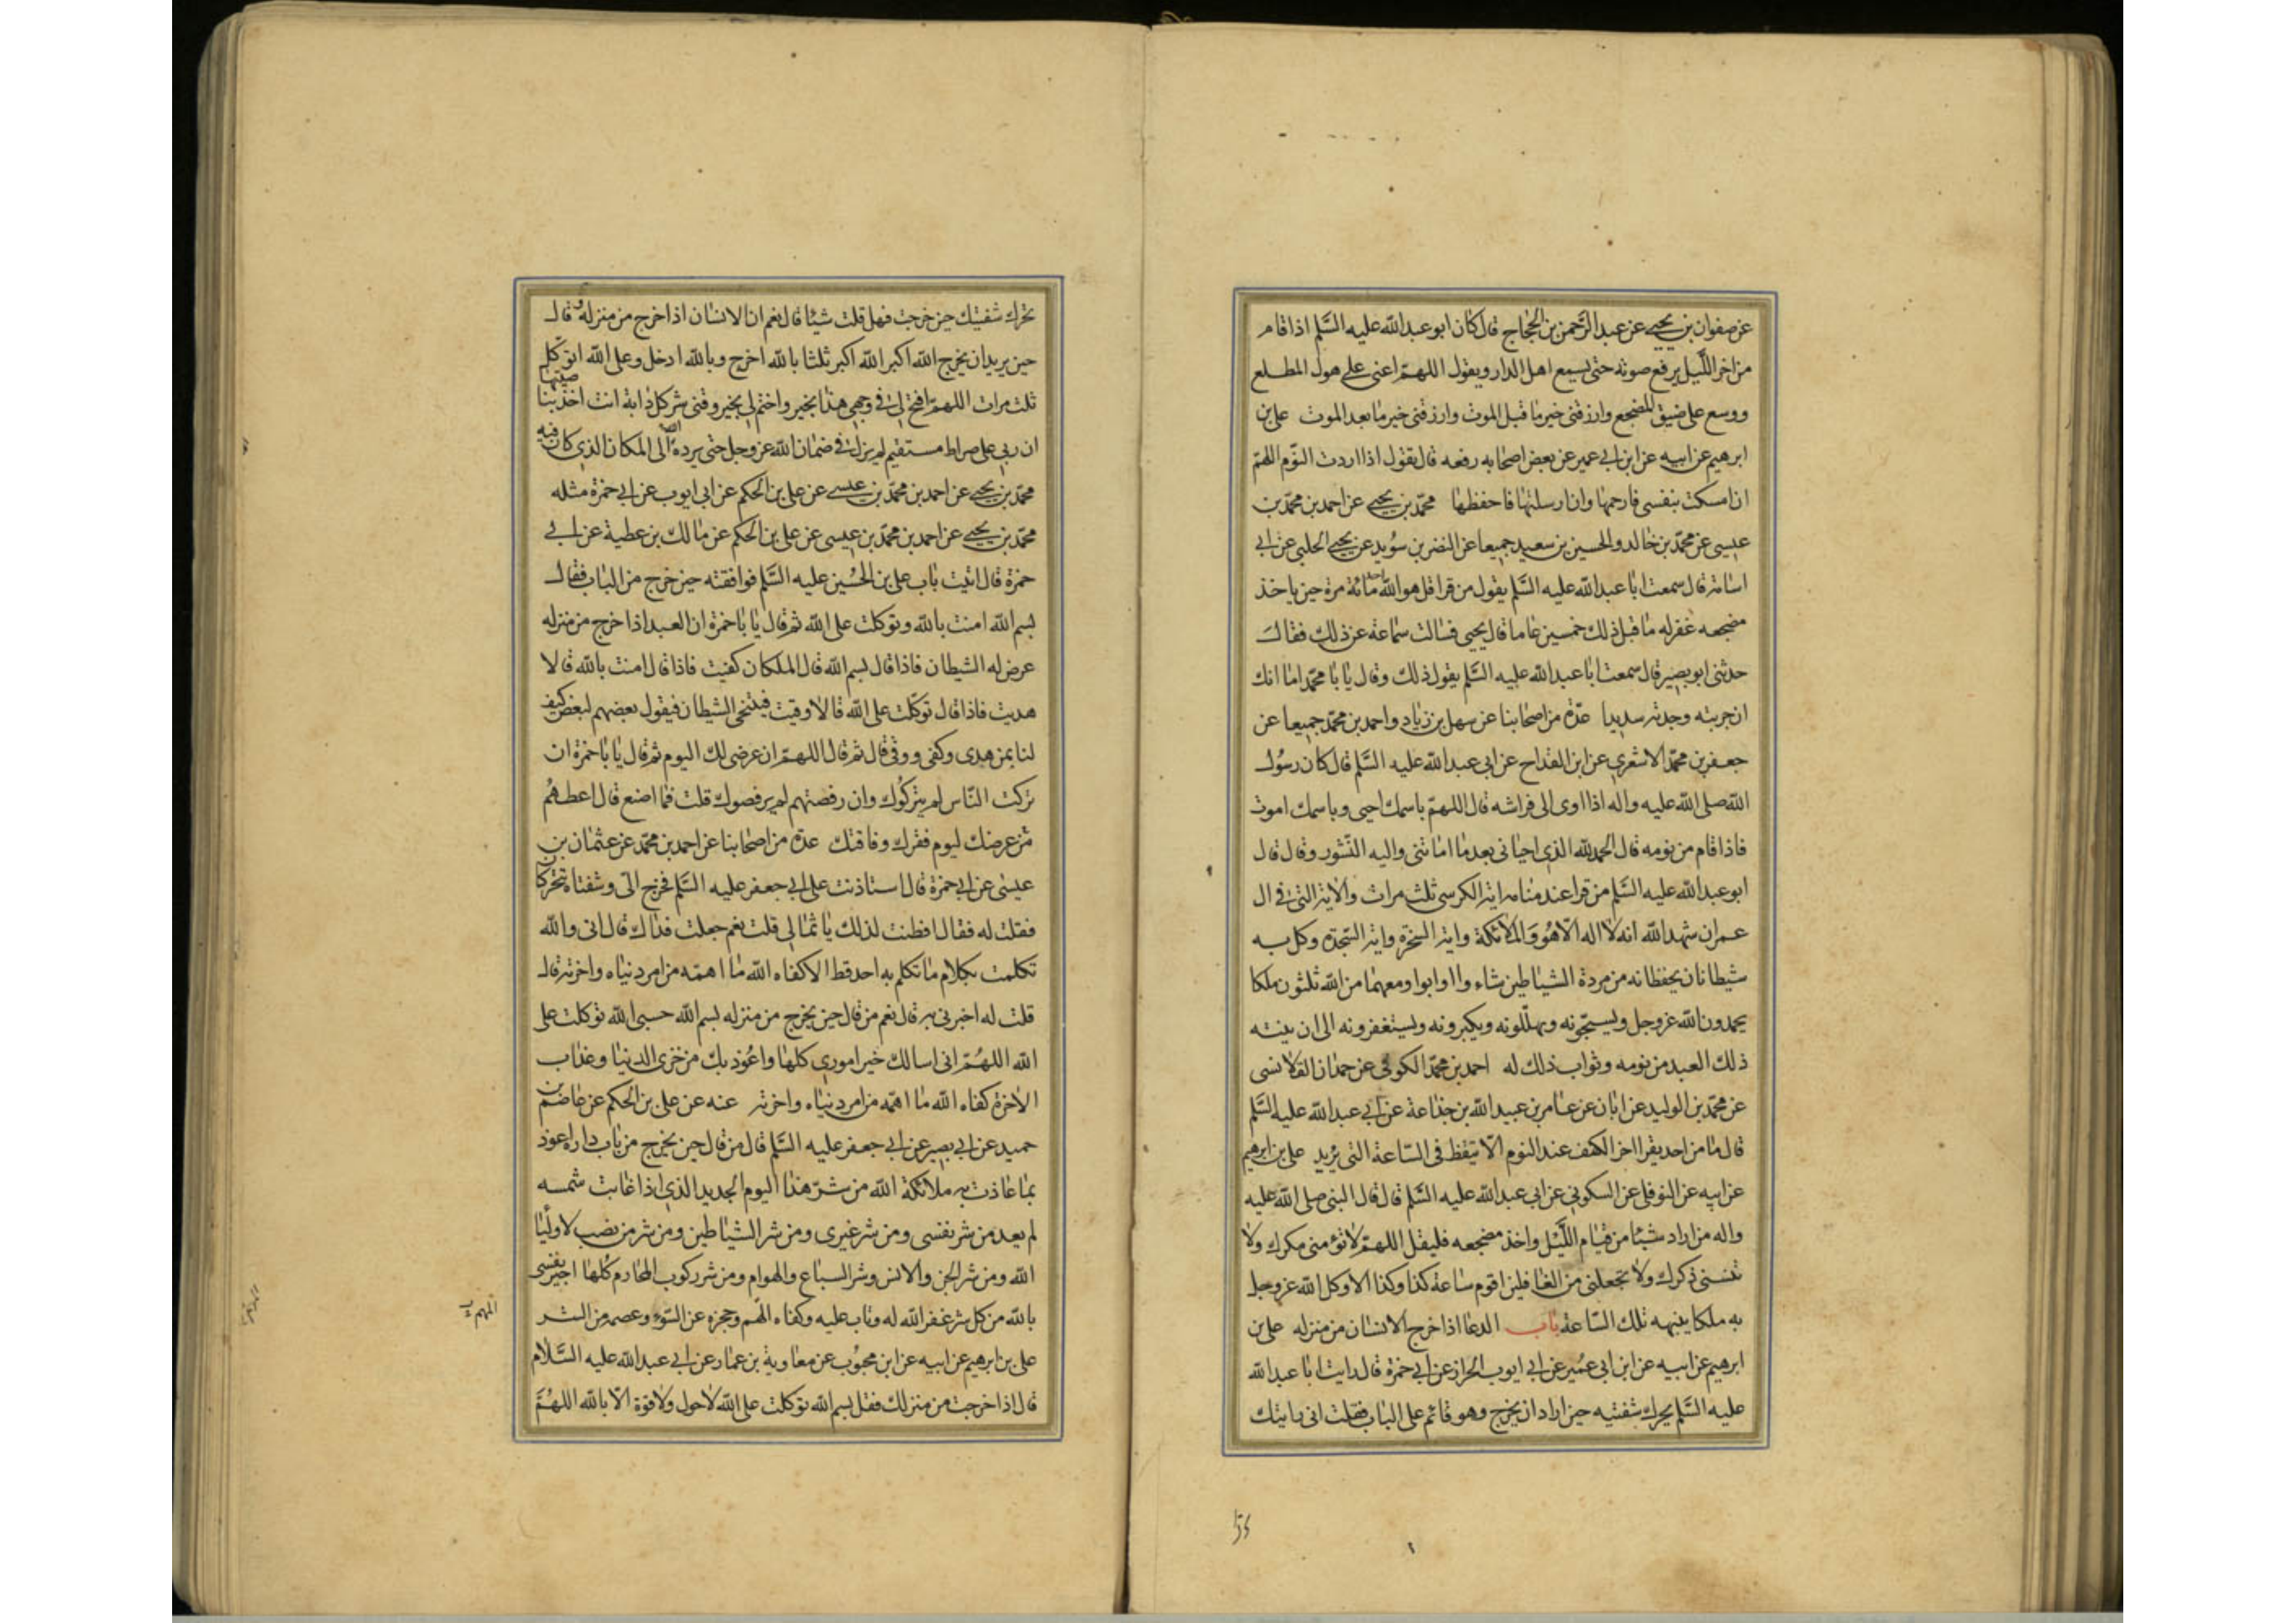 عن صفوان بن يحيى عن عبد الرحمن بن الحجاج قال كان ابو عبد الله عليه السلم اذا قام
من اخر الليل يرفع صوته حتى يسمع اهل الدار ويقول اللهم اعنى على هول المطلع
ووسع على ضيق المضجع وارزقنى خير ما قبل الموت وارزقنى خير ما بعد الموت على بن
ابرهيم عن ابيه عن ابن ابى عمير عن بعض اصحابه رفعه قال تقول اذا اردت النوم اللهم
ان امسكت بنفسى فارحمها وان ارسلتها فاحفظها محمد بن يحيى عن احمد بن محمد بن
عيسى عن محمد بن خالد والحسين بن سعيد جميعا عن النضر بن سويد عن يحيى الحلبى عن ابى
اسامة قال سمعت ابا عبد الله عليه السلم يقول من قرا قل هو الله احد مائة مرة حين ياخذ
مضجعه غفر له ما قبل ذلك خمسين عاما قال يحيى فسالت سماعة عن ذلك فقال
حدثنى ابو بصير قال سمعت ابا عبد الله عليه السلم يقول ذلك وقال يا با محمد اما انك
ان جربته وجدته سديدا عدة من اصحابنا عن سهل بن زياد واحمد بن محمد جميعا عن
جعفر بن محمد الاشعرى عن ابن القداح عن ابى عبد الله عليه السلم قال كان رسول
الله صلى الله عليه واله اذا اوى الى فراشه قال اللهم باسمك احيى وباسمك اموت
فاذا قام من نومه قال الحمد لله الذى احيانى بعد ما اماتنى واليه النشور وقال قال
ابو عبد الله عليه السلم من قرا عند منامه اية الكرسى ثلث مرات والاية التى فى ال
عمران شهد الله انه لا اله الا هو والملائكة واية السخرة واية السجدة وكل به
شيطانان يحفظانه من مردة الشياطين شاءوا او ابوا ومعهما من الله ثلثون ملكا
يحمدون الله عز وجل ويسبحونه ويهللونه ويكبرونه ويستغفرونه الى ان ينته
ذلك العبد من نومه وثواب ذلك له احمد بن محمد الكوفى عن حمدان القلانسى
عن محمد بن الوليد عن ابان عن عامر بن عبيد الله بن جذاعة عن ابى عبد الله عليه السلم
قال ما من احد يقرا اخر الكهف عند النوم الا تيقظ فى الساعة التى يريد على بن ابرهيم
عن ابيه عن النوفلى عن السكونى عن ابى عبد الله عليه السلم قال قال النبى صلى الله عليه
واله من اراد شيئا من قيام الليل واخذ مضجعه فليقل اللهم لا تؤمنى مكرك ولا
تنسنى ذكرك ولا تجعلنى من الغافلين اقوم ساعة كذا وكذا الا وكل الله عز وجل
به ملكا ينبهه تلك الساعة باب الدعا اذا خرج الانسان من منزله على بن
ابرهيم عن ابيه عن ابن ابى عمير عن ابى ايوب الخزاز عن ابى حمزة قال رايت ابا عبد الله
عليه السلم يحرك شفتيه حين اراد ان يخرج وهو قائم على الباب فقلت انى رايتك
تحرك شفتيك حين خرجت فهل قلت شيئا قال نعم ان الانسان اذا خرج من منزله قال
حين يريد ان يخرج الله اكبر الله اكبر ثلثا بالله اخرج وبالله ادخل وعلى الله اتوكل
ثلث مرات اللهم افتح لى فى وجهى هذا بخير واختم لى بخير وقنى شر كل دابة انت اخذ بناصيتها
ان ربى على صراط مستقيم لم يزل فى ضمان الله عز وجل حتى يرده الى المكان الذى كان فيه
محمد بن يحيى عن احمد بن محمد بن عيسى عن على بن الحكم عن ابى ايوب عن ابى حمزة مثله
محمد بن يحيى عن احمد بن محمد بن عيسى عن على بن الحكم عن مالك بن عطية عن ابى
حمزة قال اتيت باب على بن الحسين عليه السلم فوافقته حين خرج من الباب فقال
بسم الله امنت بالله وتوكلت على الله ثم قال يا با حمزة ان العبد اذا خرج من منزله
عرض له الشيطان فاذا قال بسم الله قال الملكان كفيت فاذا قال امنت بالله قالا
هديت فاذا قال توكلت على الله قالا وقيت فيتنحى الشيطان فيقول بعضهم لبعض كيف
لنا بمن هدى وكفى ووقى قال ثم قال اللهم ان عرضى لك اليوم ثم قال يا با حمزة ان
تركت الناس لم يتركوك وان رفضتهم لم يرفضوك قلت فما اصنع قال اعطهم
من عرضك ليوم فقرك وفاقتك عدة من اصحابنا عن احمد بن محمد عن عثمان بن
عيسى عن ابى حمزة قال استاذنت على ابى جعفر عليه السلم فخرج الى وشفتاه تتحركان
فقلت له فقال افطنت لذلك يا ثمالى قلت نعم جعلت فداك قال انى والله
تكلمت بكلام ما تكلم به احد قط الا كفاه الله ما اهمه من امر دنياه واخرته قال
قلت له اخبرنى به قال نعم من قال حين يخرج من منزله بسم الله حسبى الله توكلت على
الله اللهم انى اسالك خير امورى كلها واعوذ بك من خزى الدنيا وعذاب
الاخرة كفاه الله ما اهمه من امر دنياه واخرته عنه عن على بن الحكم عن عاصم بن
حميد عن ابى بصير عن ابى جعفر عليه السلم قال من قال حين يخرج من باب داره اعوذ
بما عاذت به ملائكة الله من شر هذا اليوم الجديد الذى اذا غابت شمسه
لم يعد من شر نفسى ومن شر غيرى ومن شر الشياطين ومن شر من نصب لاوليا
الله ومن شر الجن والانس وشر السباع والهوام ومن شر ركوب المحارم كلها اجير نفسى
بالله من كل شر غفر الله له وتاب عليه وكفاه الهم وحجزه عن السوء وعصمه من الشر
على بن ابرهيم عن ابيه عن ابن محبوب عن معاوية بن عمار عن ابى عبد الله عليه السلام
قال اذا خرجت من منزلك فقل بسم الله توكلت على الله لا حول ولا قوة الا بالله اللهم